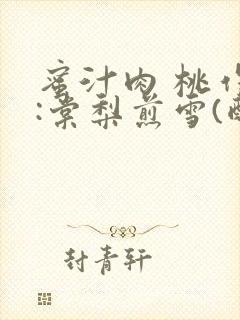 蜜汁肉桃作
:棠梨煎雪(醉
封青轩